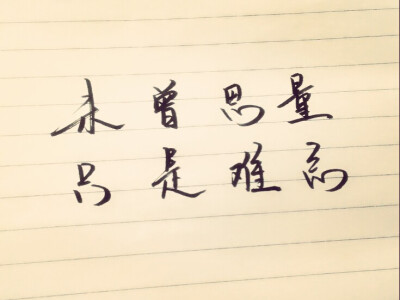 未曾思量
只是难忘